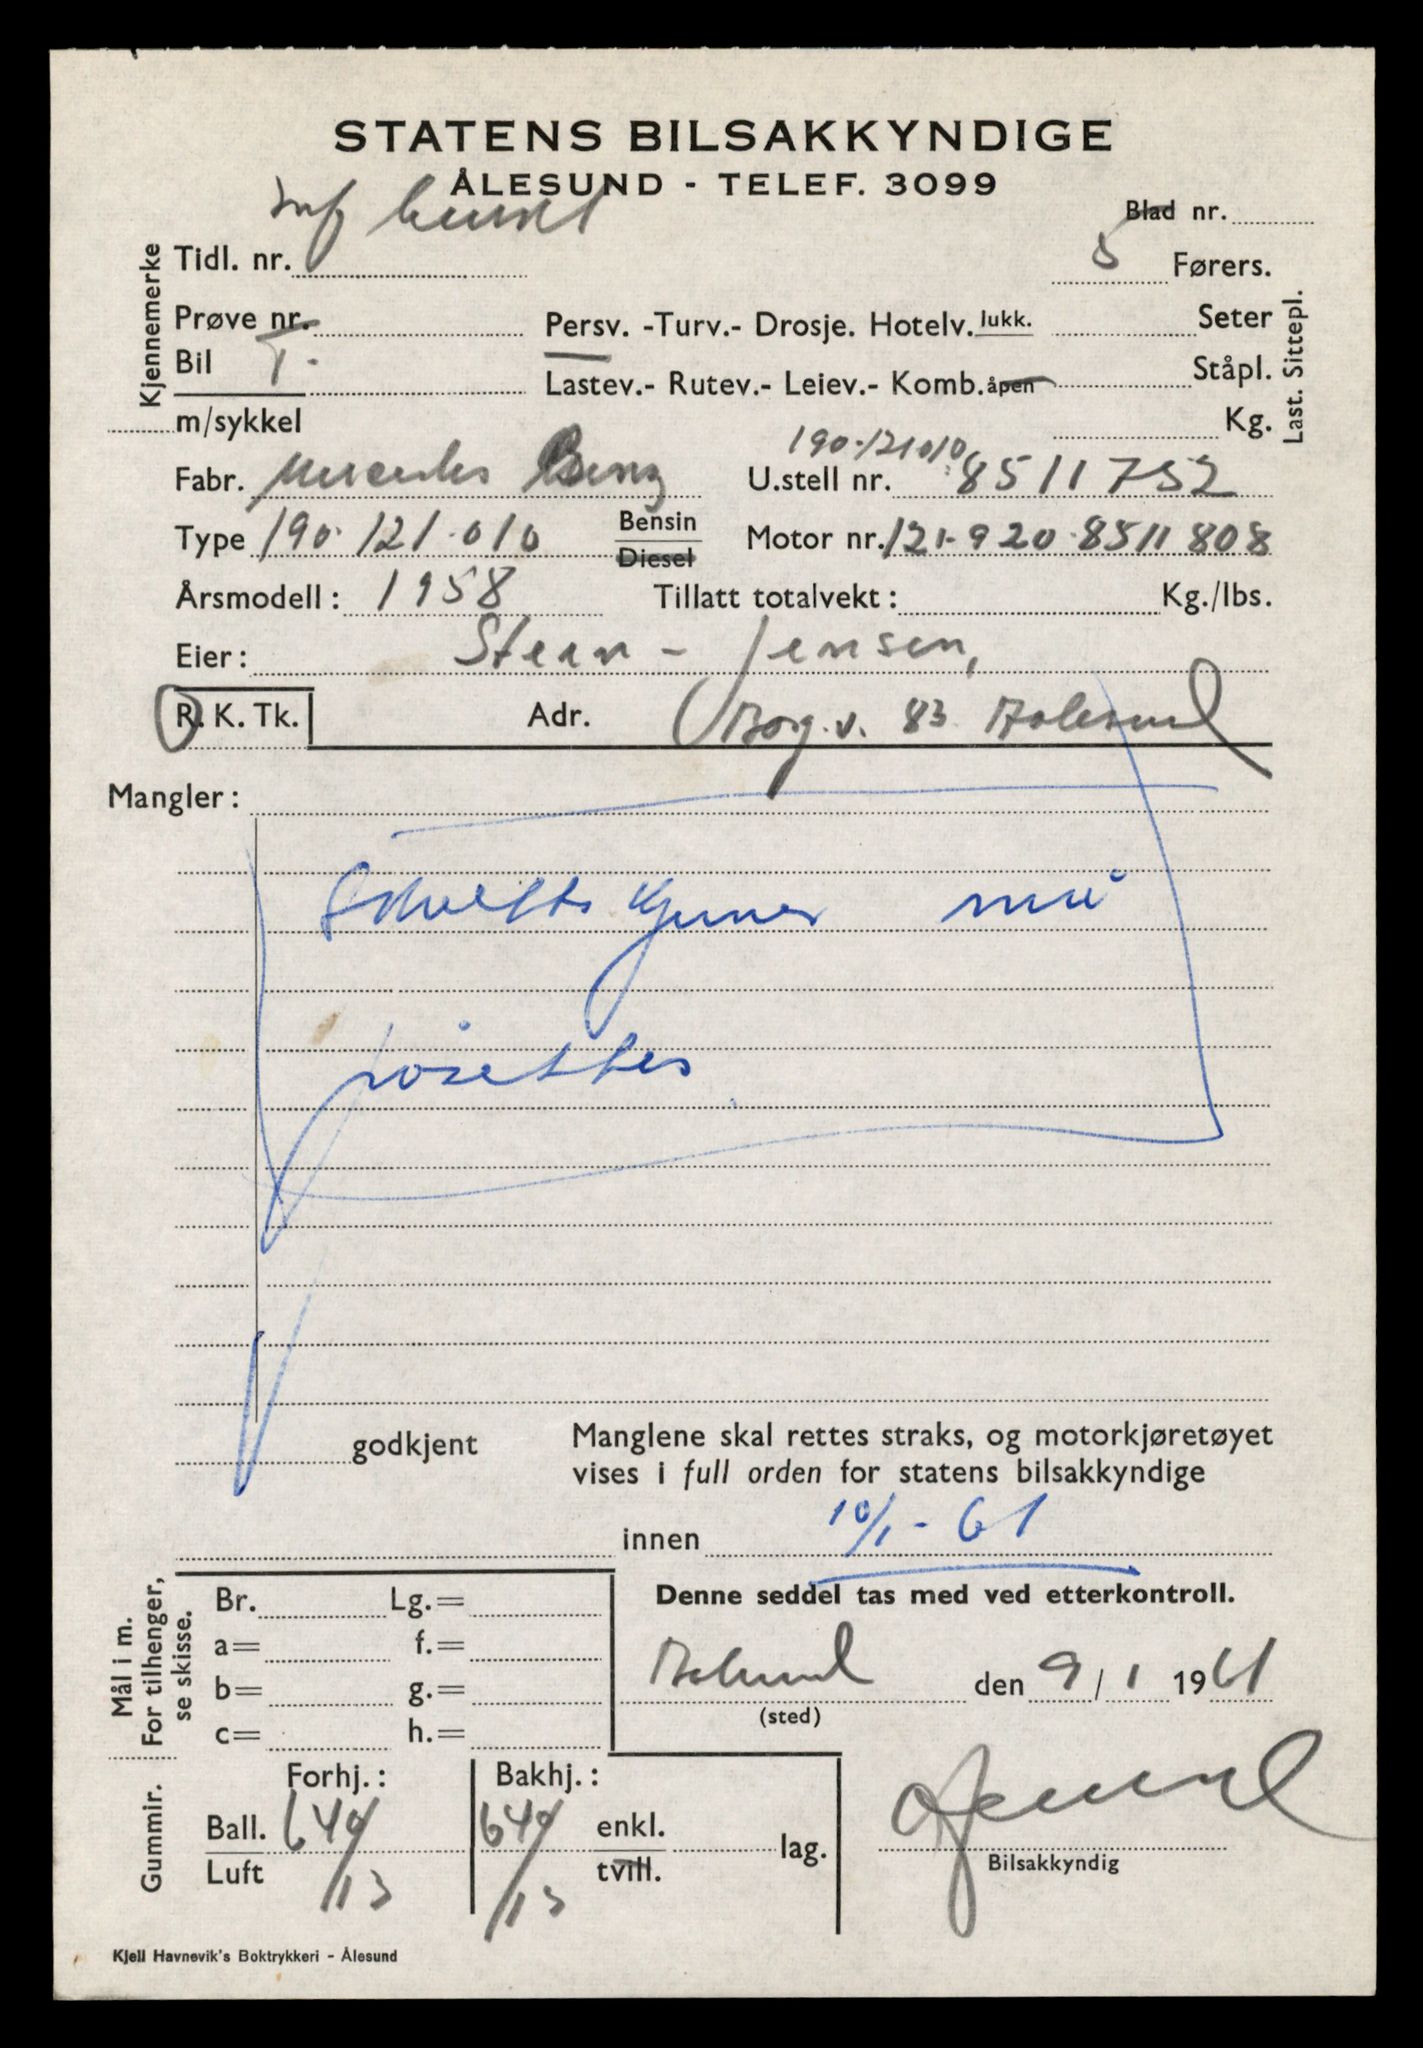 STATENS BILSAKKYNDIGE
ÅLESUND - TELEF. 3099
Blad nr.
Kjennemerke
Tidl. nr.
5 Førers.
Prøve nr.
Persv. -Turv.- Drosje. Hotelv. lukk.
Seter
Bil T.
Lastev.- Rutev.- Leiev.- Komb. åpen
Ståpl.
Last. Sittepl.
m/sykkel
Kg.
190-121010
Fabr. Mercedes Benz
U.stell nr. 8511752
Type 190.121.010
Bensin
Diesel
Motor nr. 121-920.8511808
Årsmodell: 1958
Tillatt totalvekt: Kg./lbs.
Eier: Steen - Jensen,
R. K. Tk.
Adr. Borg.v. 83 Aalesund
Mangler:
må
godkjent
Manglene skal rettes straks, og motorkjøretøyet
vises i full orden for statens bilsakkyndige
innen 10/1-61
Denne seddel tas med ved etterkontroll.
Mål i m.
For tilhenger,
se skisse.
Br. Lg.=
a= f.=
b= g.=
c= h.=
Aalesund den 9/1 1961
(sted)
Gummir.
Forhj.:
Bakhj.:
Ball. 640/13
Luft
640/13
enkl.
tvill.
lag.
Bilsakkyndig
Kjell Havnevik's Boktrykkeri - Ålesund